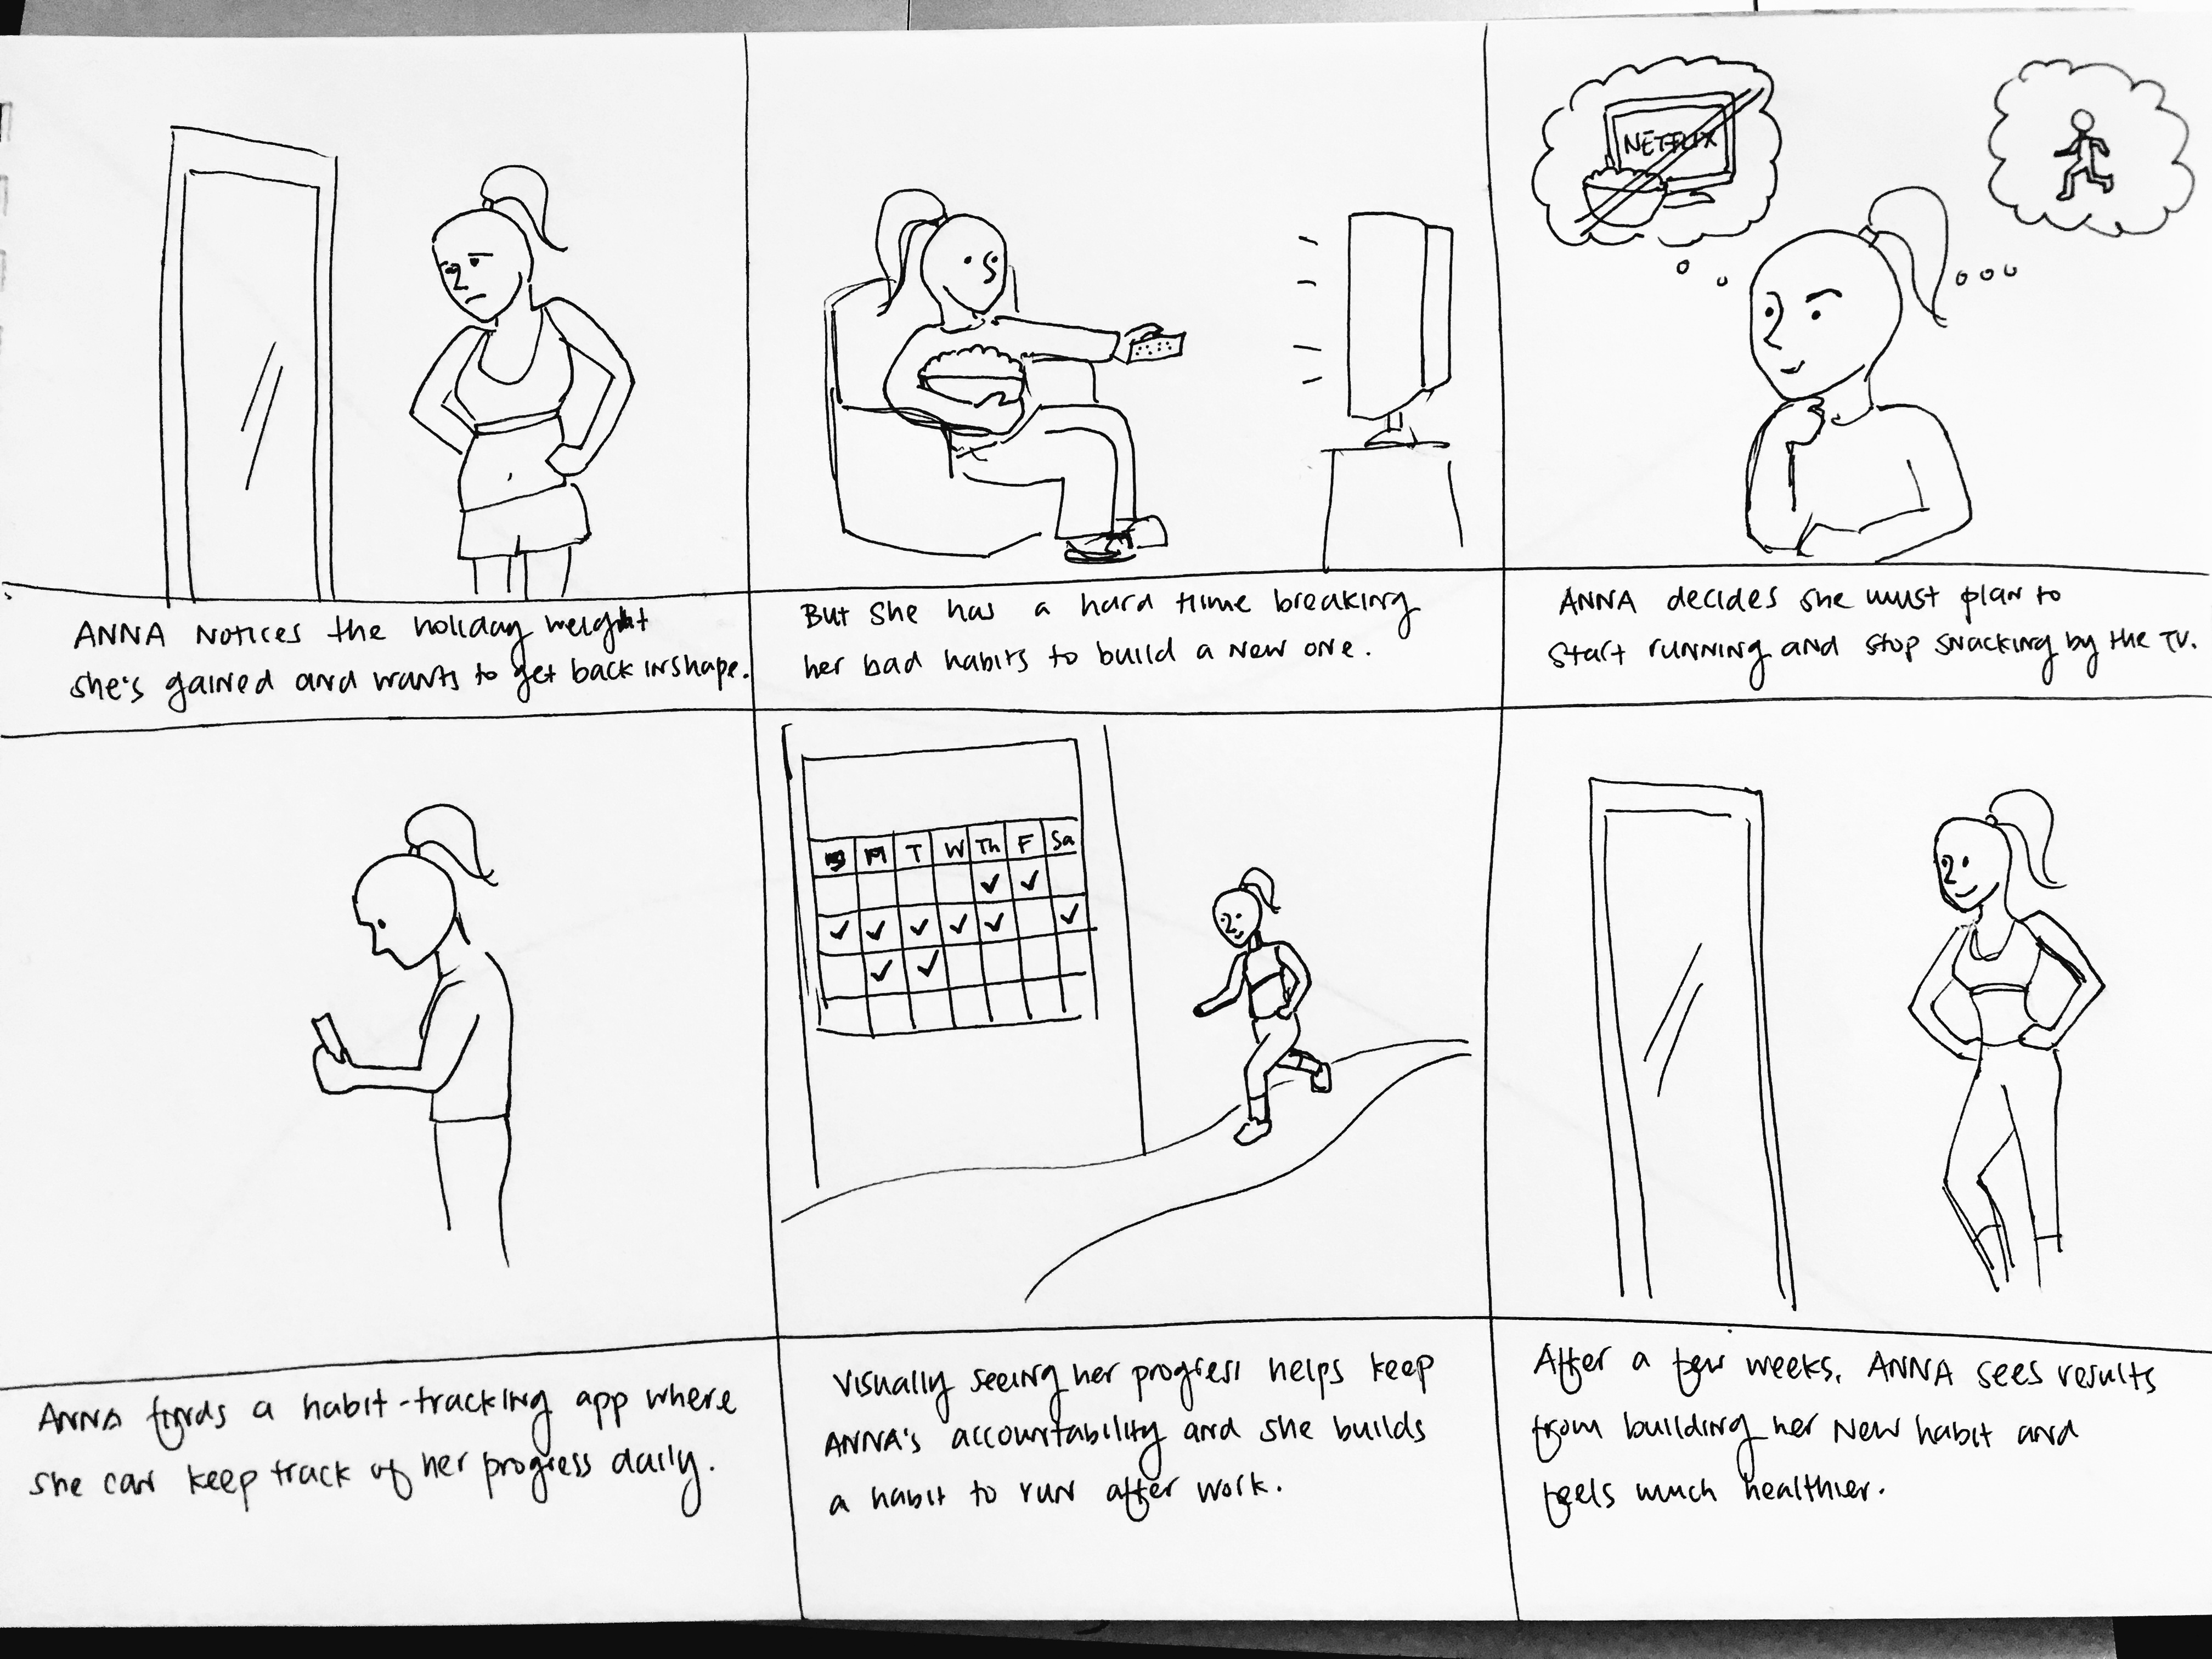 NETFLIX
ANNA NOTICES the holiday weight
she's gained and wants to get back in shape.
But she has a hard time breaking
her bad habits to build a new one.
ANNA decides she must plan to
start running and stop snacking by the TV.
M T W Th F Sa
ANNA finds a habit-tracking app where
she can keep track of her progress daily.
Visually seeing her progress helps keep
ANNA's accountability and she builds
a habit to run after work.
After a few weeks, ANNA sees results
from building her new habit and
feels much healthier.